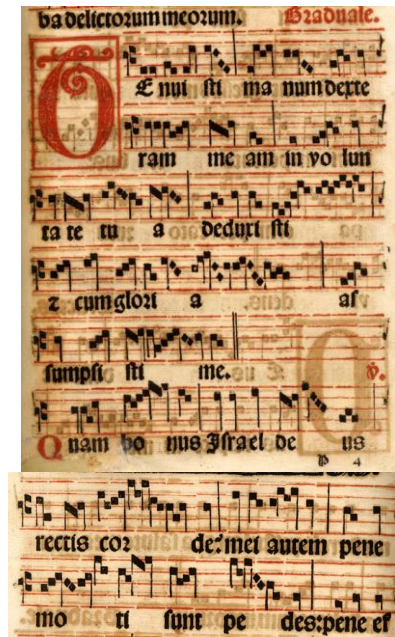 ba delictorum meorum. Graduale.
TE nui sti ma num dexte
ram me am in vo lun
ta te tu a deduxi sti
⁊ cum glori a as
sumpsi sti me. ℣.
Q uam bo nus Israel de us
rectis cor de: mei autem pene
mo ti sunt pe des: pene ef